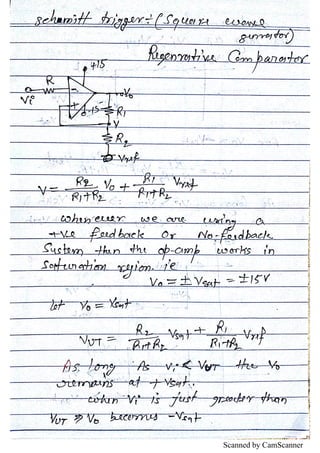 schmitt trigger :- (Square wave
generator)
Regenrative Comparator
+15
R
Vi
-
+
Vo
-15
R1
V
R2
Vref
V = R2/(R1+R2) Vo + R1/(R1+R2) Vref
whenever we are using a
+ve feedback or No-feedback
System then the op-amp works in
Saturation region ie
Vo = ± Vsat = ±15V
let Vo = Vsat
VUT = R2/(R1+R2) Vsat + R1/(R1+R2) Vref
As long As Vi < VUT the Vo
remains at + Vsat.
when Vi is just greater than
VUT ⇒ Vo becomes -Vsat
Scanned by CamScanner